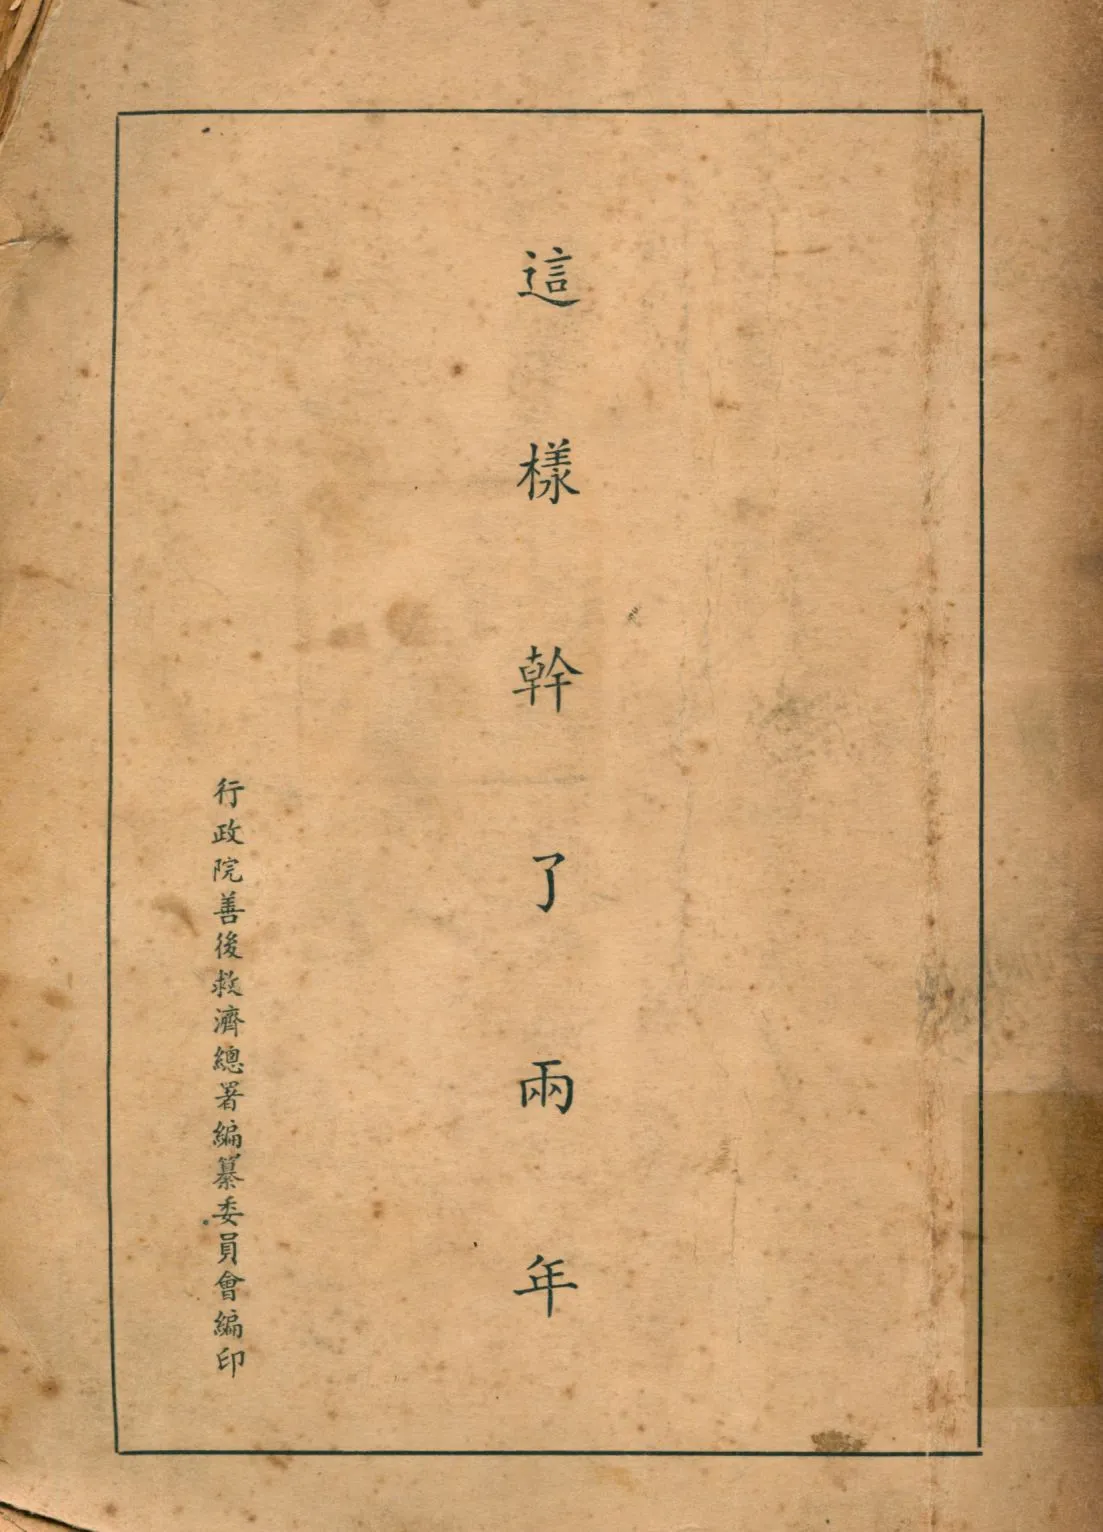 這樣幹了兩年
行政院善後救濟總署編纂委員會編印